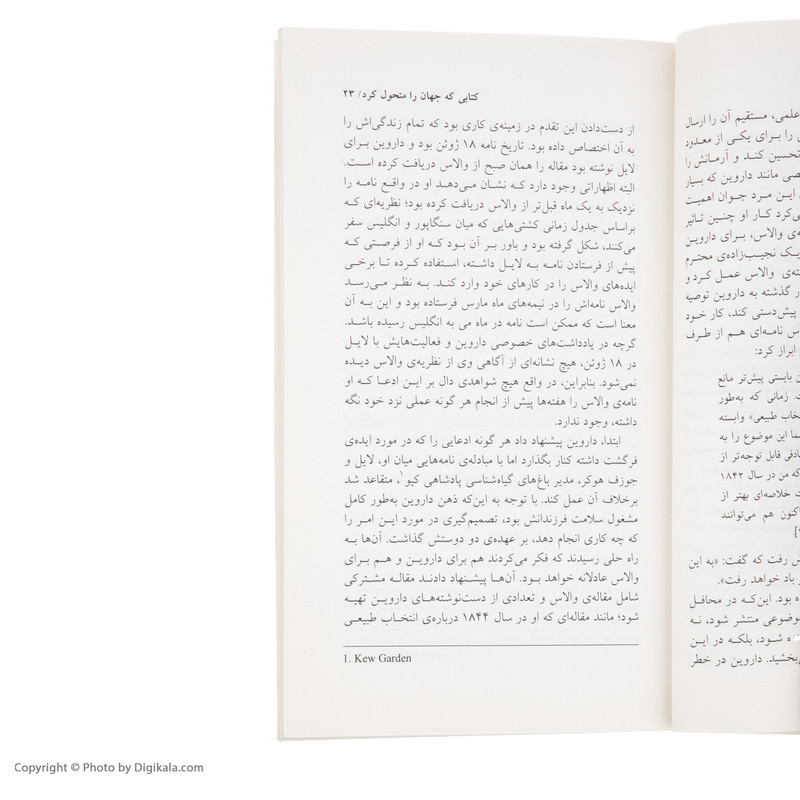 کتابی که جهان را متحول کرد/ ۲۳
از دست‌دادن این تقدم در زمینه‌ی کاری بود که تمام زندگی‌اش را
به آن اختصاص داده بود. تاریخ نامه ۱۸ ژوئن بود و داروین برای
لایل نوشته بود مقاله را همان صبح از والاس دریافت کرده است.
البته اظهاراتی وجود دارد که نشان می‌دهد او در واقع نامه را
نزدیک به یک ماه قبل‌تر از والاس دریافت کرده بود؛ نظریه‌ای که
براساس جدول زمانی کشتی‌هایی که میان سنگاپور و انگلیس سفر
می‌کنند، شکل گرفته بود و باور بر آن بود که او از فرصتی که
پیش از فرستادن نامه به لایل داشته، استفاده کرده تا برخی
ایده‌های والاس را در کارهای خود وارد کند. به نظر می‌رسد
والاس نامه‌اش را در نیمه‌های ماه مارس فرستاده بود و این به آن
معنا است که ممکن است نامه در ماه می به انگلیس رسیده باشد.
گرچه در یادداشت‌های خصوصی داروین و فعالیت‌هایش با لایل
در ۱۸ ژوئن، هیچ نشانه‌ای از آگاهی وی از نظریه‌ی والاس دیده
نمی‌شود. بنابراین، در واقع هیچ شواهدی دال بر این ادعا که او
نامه‌ی والاس را هفته‌ها پیش از انجام هر گونه عملی نزد خود نگه
داشته، وجود ندارد.
ابتدا، داروین پیشنهاد داد هر گونه ادعایی را که در مورد ایده‌ی
فرگشت داشته کنار بگذارد اما با مبادله‌ی نامه‌هایی میان او، لایل و
جوزف هوکر، مدیر باغ‌های گیاه‌شناسی پادشاهی کیو۱، متقاعد شد
برخلاف آن عمل کند. با توجه به این‌که ذهن داروین به‌طور کامل
مشغول سلامت فرزندانش بود، تصمیم‌گیری در مورد این امر را
که چه کاری انجام دهد، بر عهده‌ی دو دوستش گذاشت. آن‌ها به
راه حلی رسیدند که فکر می‌کردند هم برای داروین و هم برای
والاس عادلانه خواهد بود. آن‌ها پیشنهاد دادند مقاله مشترکی
شامل مقاله‌ی والاس و تعدادی از دست‌نوشته‌های داروین تهیه
شود؛ مانند مقاله‌ای که او در سال ۱۸۴۴ درباره‌ی انتخاب طبیعی
1. Kew Garden
علمی، مستقیم آن را ارسال
را برای یکی از معدود
تحسین کند و آرمانش را
مانند داروین که بسیار
این مرد جوان اهمیت
کار او چنین تاثیر
والاس، برای داروین
یک نجیب‌زاده‌ی محترم
والاس عمل کرد و
گذشته به داروین توصیه
پیش‌دستی کند، کار خود
نامه‌ای هم از طرف
ابراز کرد:
بایستی پیش‌تر مانع
زمانی که به‌طور
طبیعی» وابسته
این موضوع را به
قابل توجه‌تر از
که من در سال ۱۸۴۲
خلاصه‌ای بهتر از
هم می‌توانند
رفت که گفت: «به این
باد خواهد رفت».
بود. این‌که در محافل
منتشر شود، نه
شود، بلکه در این
داروین در خطر
Copyright © Photo by Digikala.com